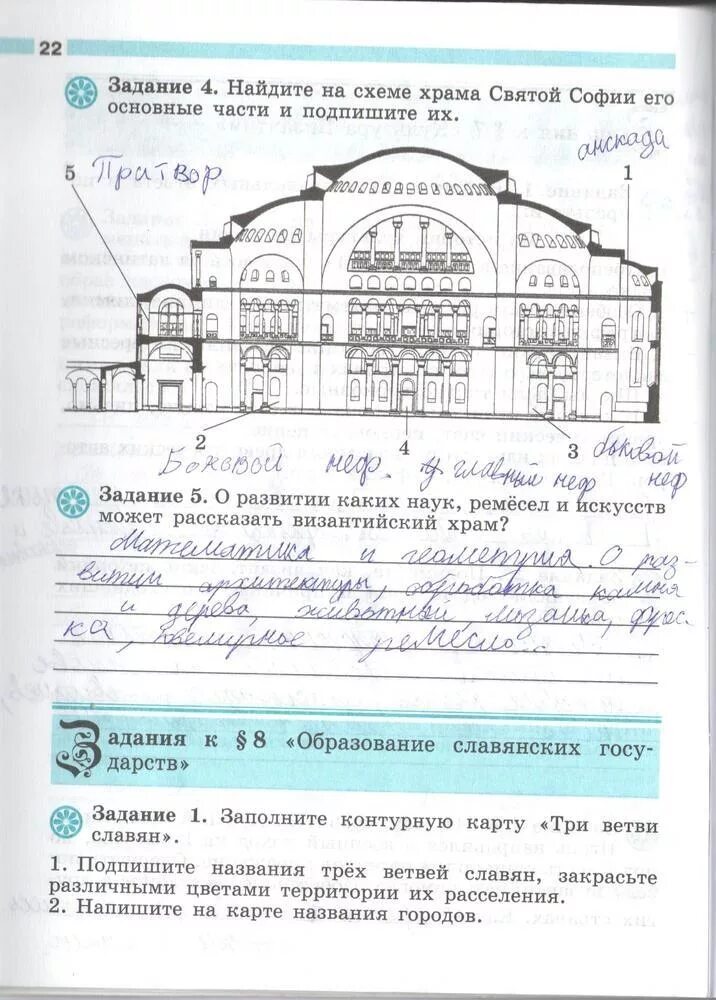 22
Задание 4. Найдите на схеме храма Святой Софии его
основные части и подпишите их.
анскада
5 Притвор 1
2 4 3
Боковой неф. 4 главный неф боковой неф
Задание 5. О развитии каких наук, ремёсел и искусств
может рассказать византийский храм?
Математика и геометрия. О раз-
витии архитектуры, обработка камня
и дерева, животный, мозаика, фрес-
ка, ювелирное ремесло.
Задания к § 8 «Образование славянских госу-
дарств»
Задание 1. Заполните контурную карту «Три ветви
славян».
1. Подпишите названия трёх ветвей славян, закрасьте
различными цветами территории их расселения.
2. Напишите на карте названия городов.